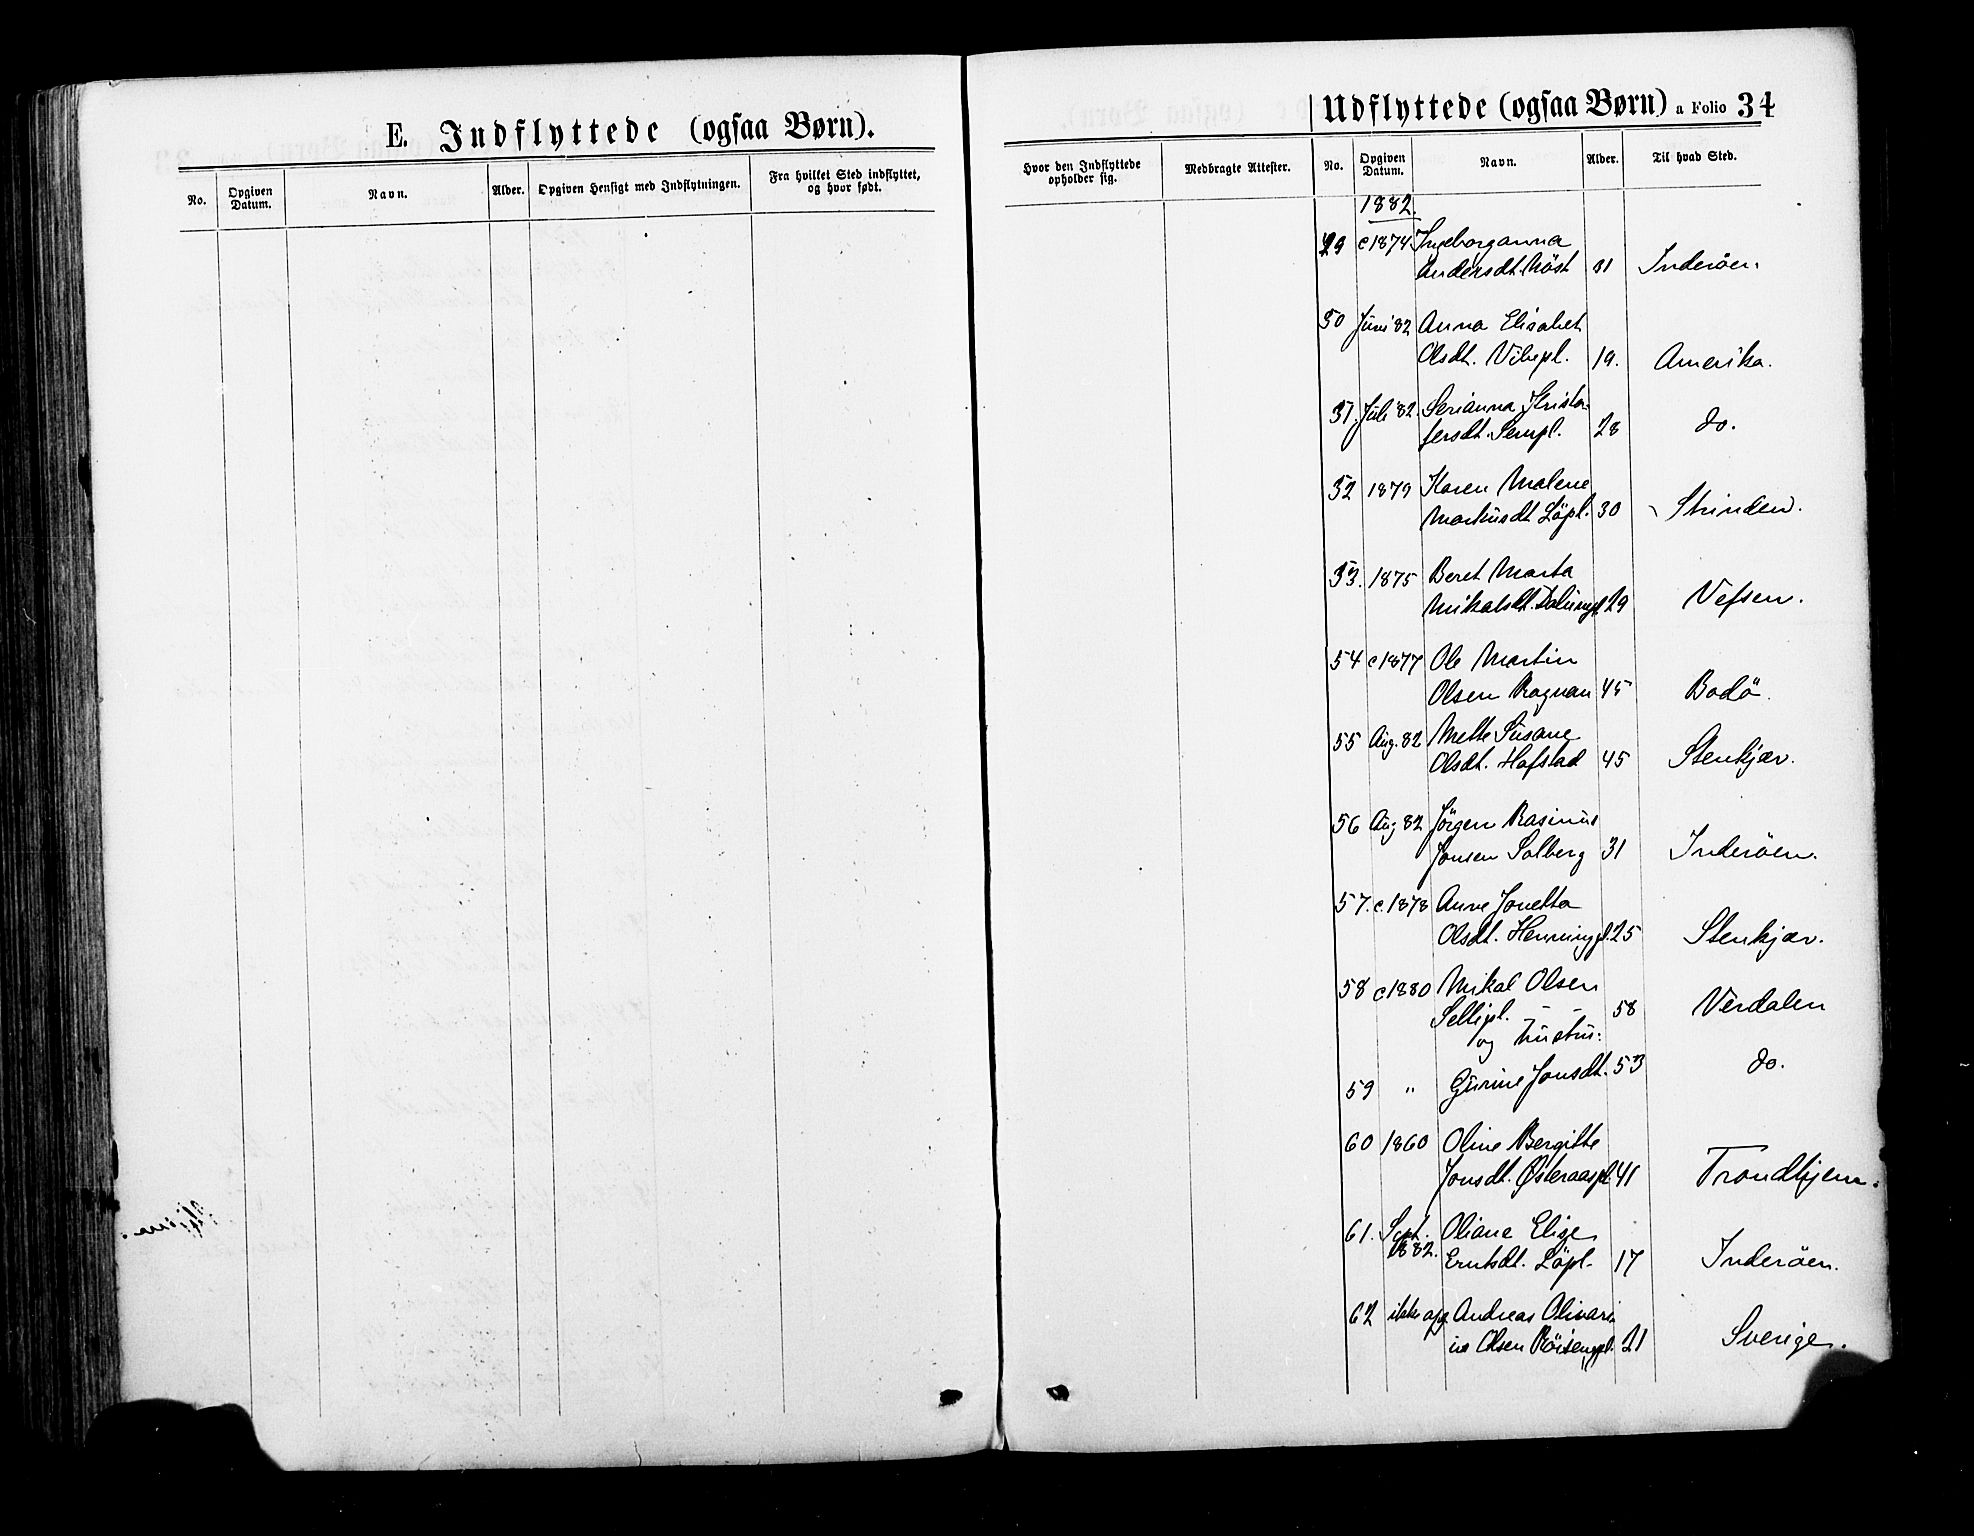 E. Indflyttede (ogsaa Børn).
No. Opgiven Datum. Navn. Alder. Opgiven Hensigt med Indflytningen. Fra hvilket Sted indflyttet, og hvor født.
Udflyttede (ogsaa Børn) a Folio 34
Hvor den Indflyttede opholder sig. Medbragte Attester. No. Opgiven Datum. Navn. Alder. Til hvad Sted.
1882.
29 c 1874 Ingeborganna
Andersdt. Røst 31 Inderøen.
50 Juni 82 Anna Elisabet
Olsdt. Vibepl. 19. Amerika.
51. Juli 82. Serianna Kristo-
fersdt. Sempl. 28 do.
52 1879 Karen Malene
Markusdt Løpl. 30 Strinden.
53. 1875 Beret Marta
Mikalsdt. 29 Vefsen.
54 c 1877 Ole Martin
Olsen Kragnan 45 Bodö.
55 Aug. 82 Mette Susane
Olsdt. Hofstad 45 Stenkjær.
56 Aug 82 Jörgen Rasinus
Jonsen Solberg 31 Inderöen.
57. c. 1878 Anne Jonetta
Olsdt. Henningpl. 25 Stenkjær.
58 c 1880 Mikal Olsen
Sellipl. 58 Verdalen
og hustru:
59 " Gurine Jonsdt. 53 do.
60 1860 Oline Bergitte
Jonsdt. Østeraaspl. 41 Trondhjem.
61. Sept. Oliane Elise
1882. Erntsdt. Löpl. 17 Inderöen.
62 ikke opg Andreas Olivari
us Olsen Röisengpl. 21 Sverige.